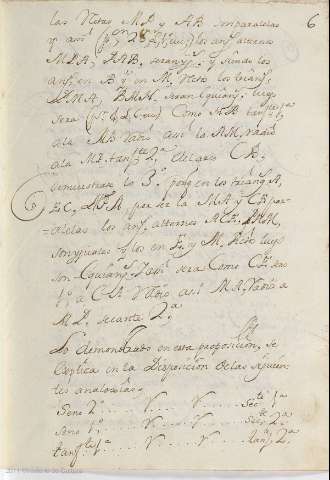 6
las Retas M.L y A.B son paralelas
y assi los ang.s alternos
M.L.A, L.A.B, seran y siendo los
ang.s en B y en M. Retos los triang.s
L.M.A, B.A.H. seran Equiang.s luego
sera Como H.B tang.te 1.a
a la A.B Radio assi la A.M. Radio
a la M.L. tang.te 2.a del arco C.B.
Demuestrase lo 3.º porq en los triang.s A,
B.C, L.M.A por ser la M.A y C.B par-
alelas los ang.s alternos A.C.B, L.A.M,
son yguales y los en B, y M, Retos luego
son Equiang.s y assi sera Como C.B seno
1.º a C.A Radio assi M.A, Radio a
M.L. secante 2.a
Lo demonstrado en esta proposicion, se
explica en la Disposicion de las siguien-
tes analogias.
Seno 2.º V V Sec.te 1.a
Seno 1.º V V Sec.te 2.a
tang.te 1.a V V tan.te 2.a